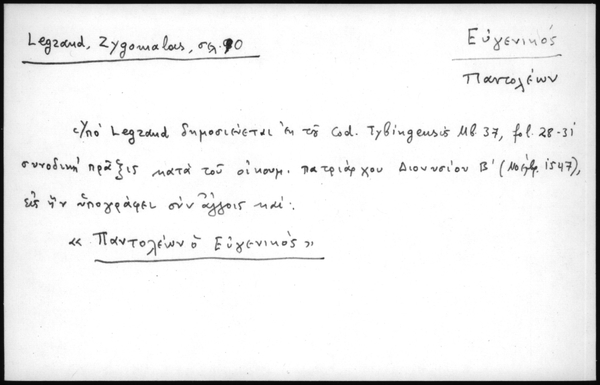 Legrand, Zygomalas, σελ. 90
Εὐγενικός
Παντολέων
Ὑπό Legrand δημοσιεύεται ἐκ τοῦ Cod. Tybingensis Mb 37, fol. 28-31
συνοδική πρᾶξις κατά τοῦ οἰκουμ. πατριάρχου Διονυσίου Β' (Νοέμβρ. 1547),
εἰς ἥν ὑπογράφει σύν ἄλλοις καί:
« Παντολέων ὁ Εὐγενικός »